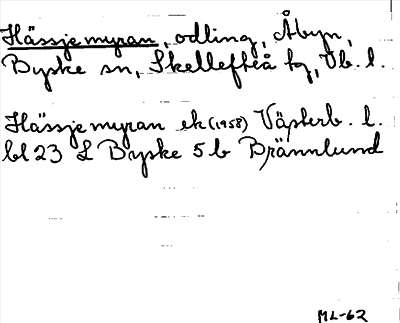 Hässjemyran, odling, Åbyn,
Byske sn, Skellefteå tg, Vb. l.
Hässjemyran ek (1958) Västerb. l.
bl 23 L Byske 5 b Brännlund
ML-62